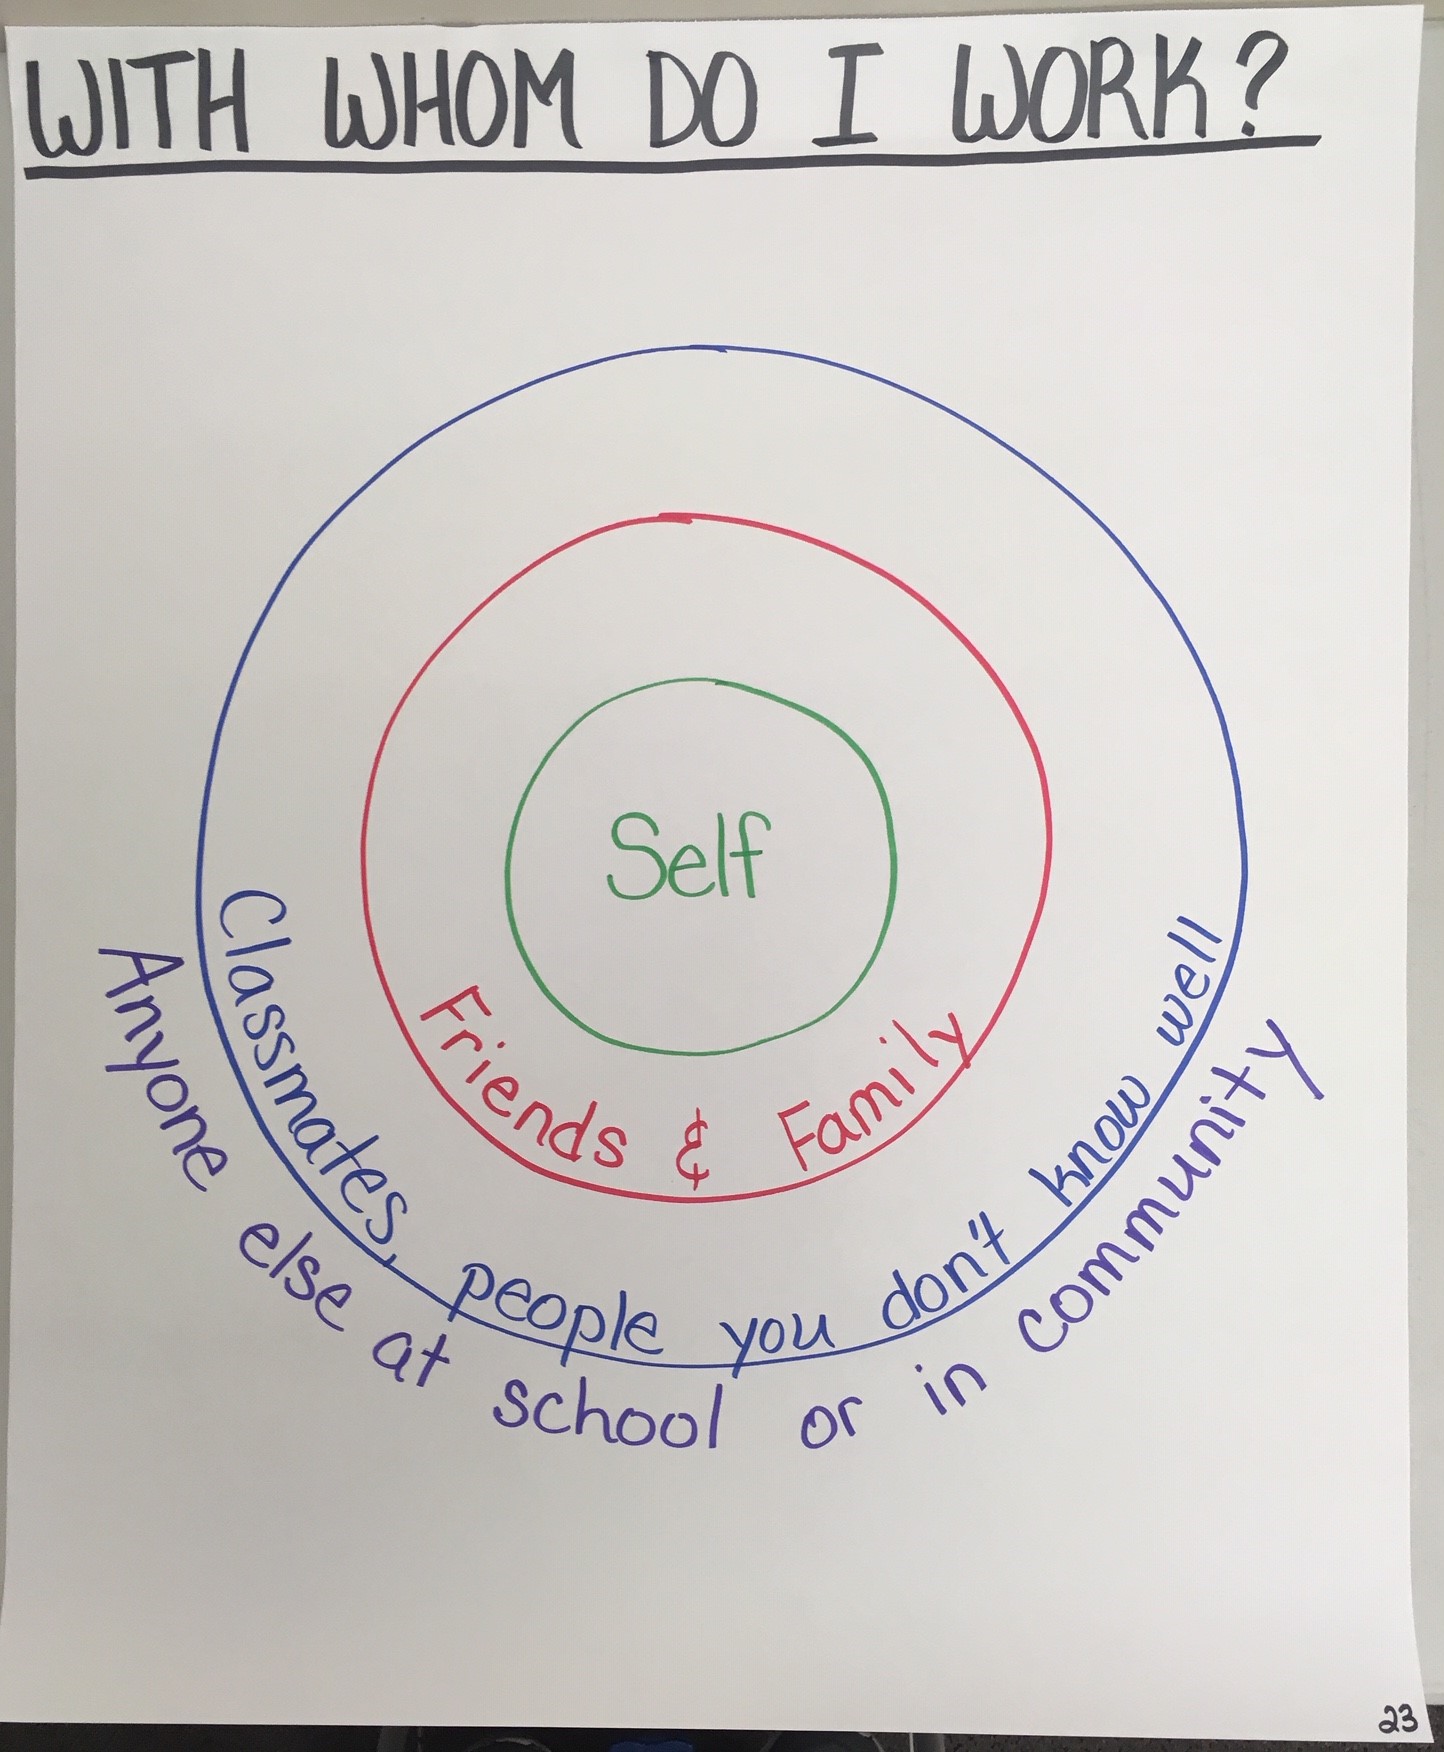 WITH WHOM DO I WORK?
Self
Friends & Family
Classmates, people you don't know well
Anyone else at school or in community
23